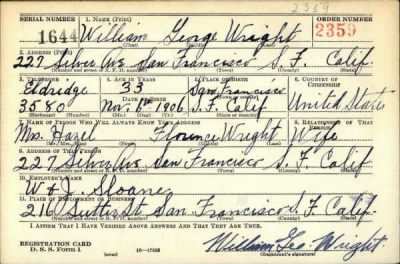 2359
SERIAL NUMBER 1. NAME (Print) ORDER NUMBER
1644 William George Wright 2359
(First) (Middle) (Last)
2. ADDRESS (Print)
227 Silver Ave San Francisco S.F. Calif.
3. TELEPHONE 4. AGE IN YEARS 5. PLACE OF BIRTH 6. COUNTRY OF CITIZENSHIP
Eldridge 33 San Francisco
DATE OF BIRTH
3580 Nov. 1906 S.F. Calif United States
7. NAME OF PERSON WHO WILL ALWAYS KNOW YOUR ADDRESS 8. RELATIONSHIP OF THAT PERSON
Mrs. Hazel Florence Wright Wife
9. ADDRESS OF THAT PERSON
227 Silver Ave San Francisco S.F. Calif.
10. EMPLOYER'S NAME
W & J. Sloane
11. PLACE OF EMPLOYMENT OR BUSINESS
216 Sutter St San Francisco S.F. Calif.
I AFFIRM THAT I HAVE VERIFIED ABOVE ANSWERS AND THAT THEY ARE TRUE.
REGISTRATION CARD
D. S. S. Form 1 (over) William Geo. Wright
(Registrant's signature)